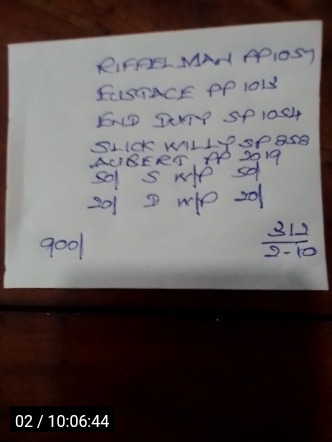 RIFFELMAN PP1057
EUSTACE PP 1013
END DUTY SP 1054
SLICK WILLY SP 858
AUBERT PP 2019
50/ S W/P 50/
20/ D W/P 20/
900/
312
2-10
02 / 10:06:44